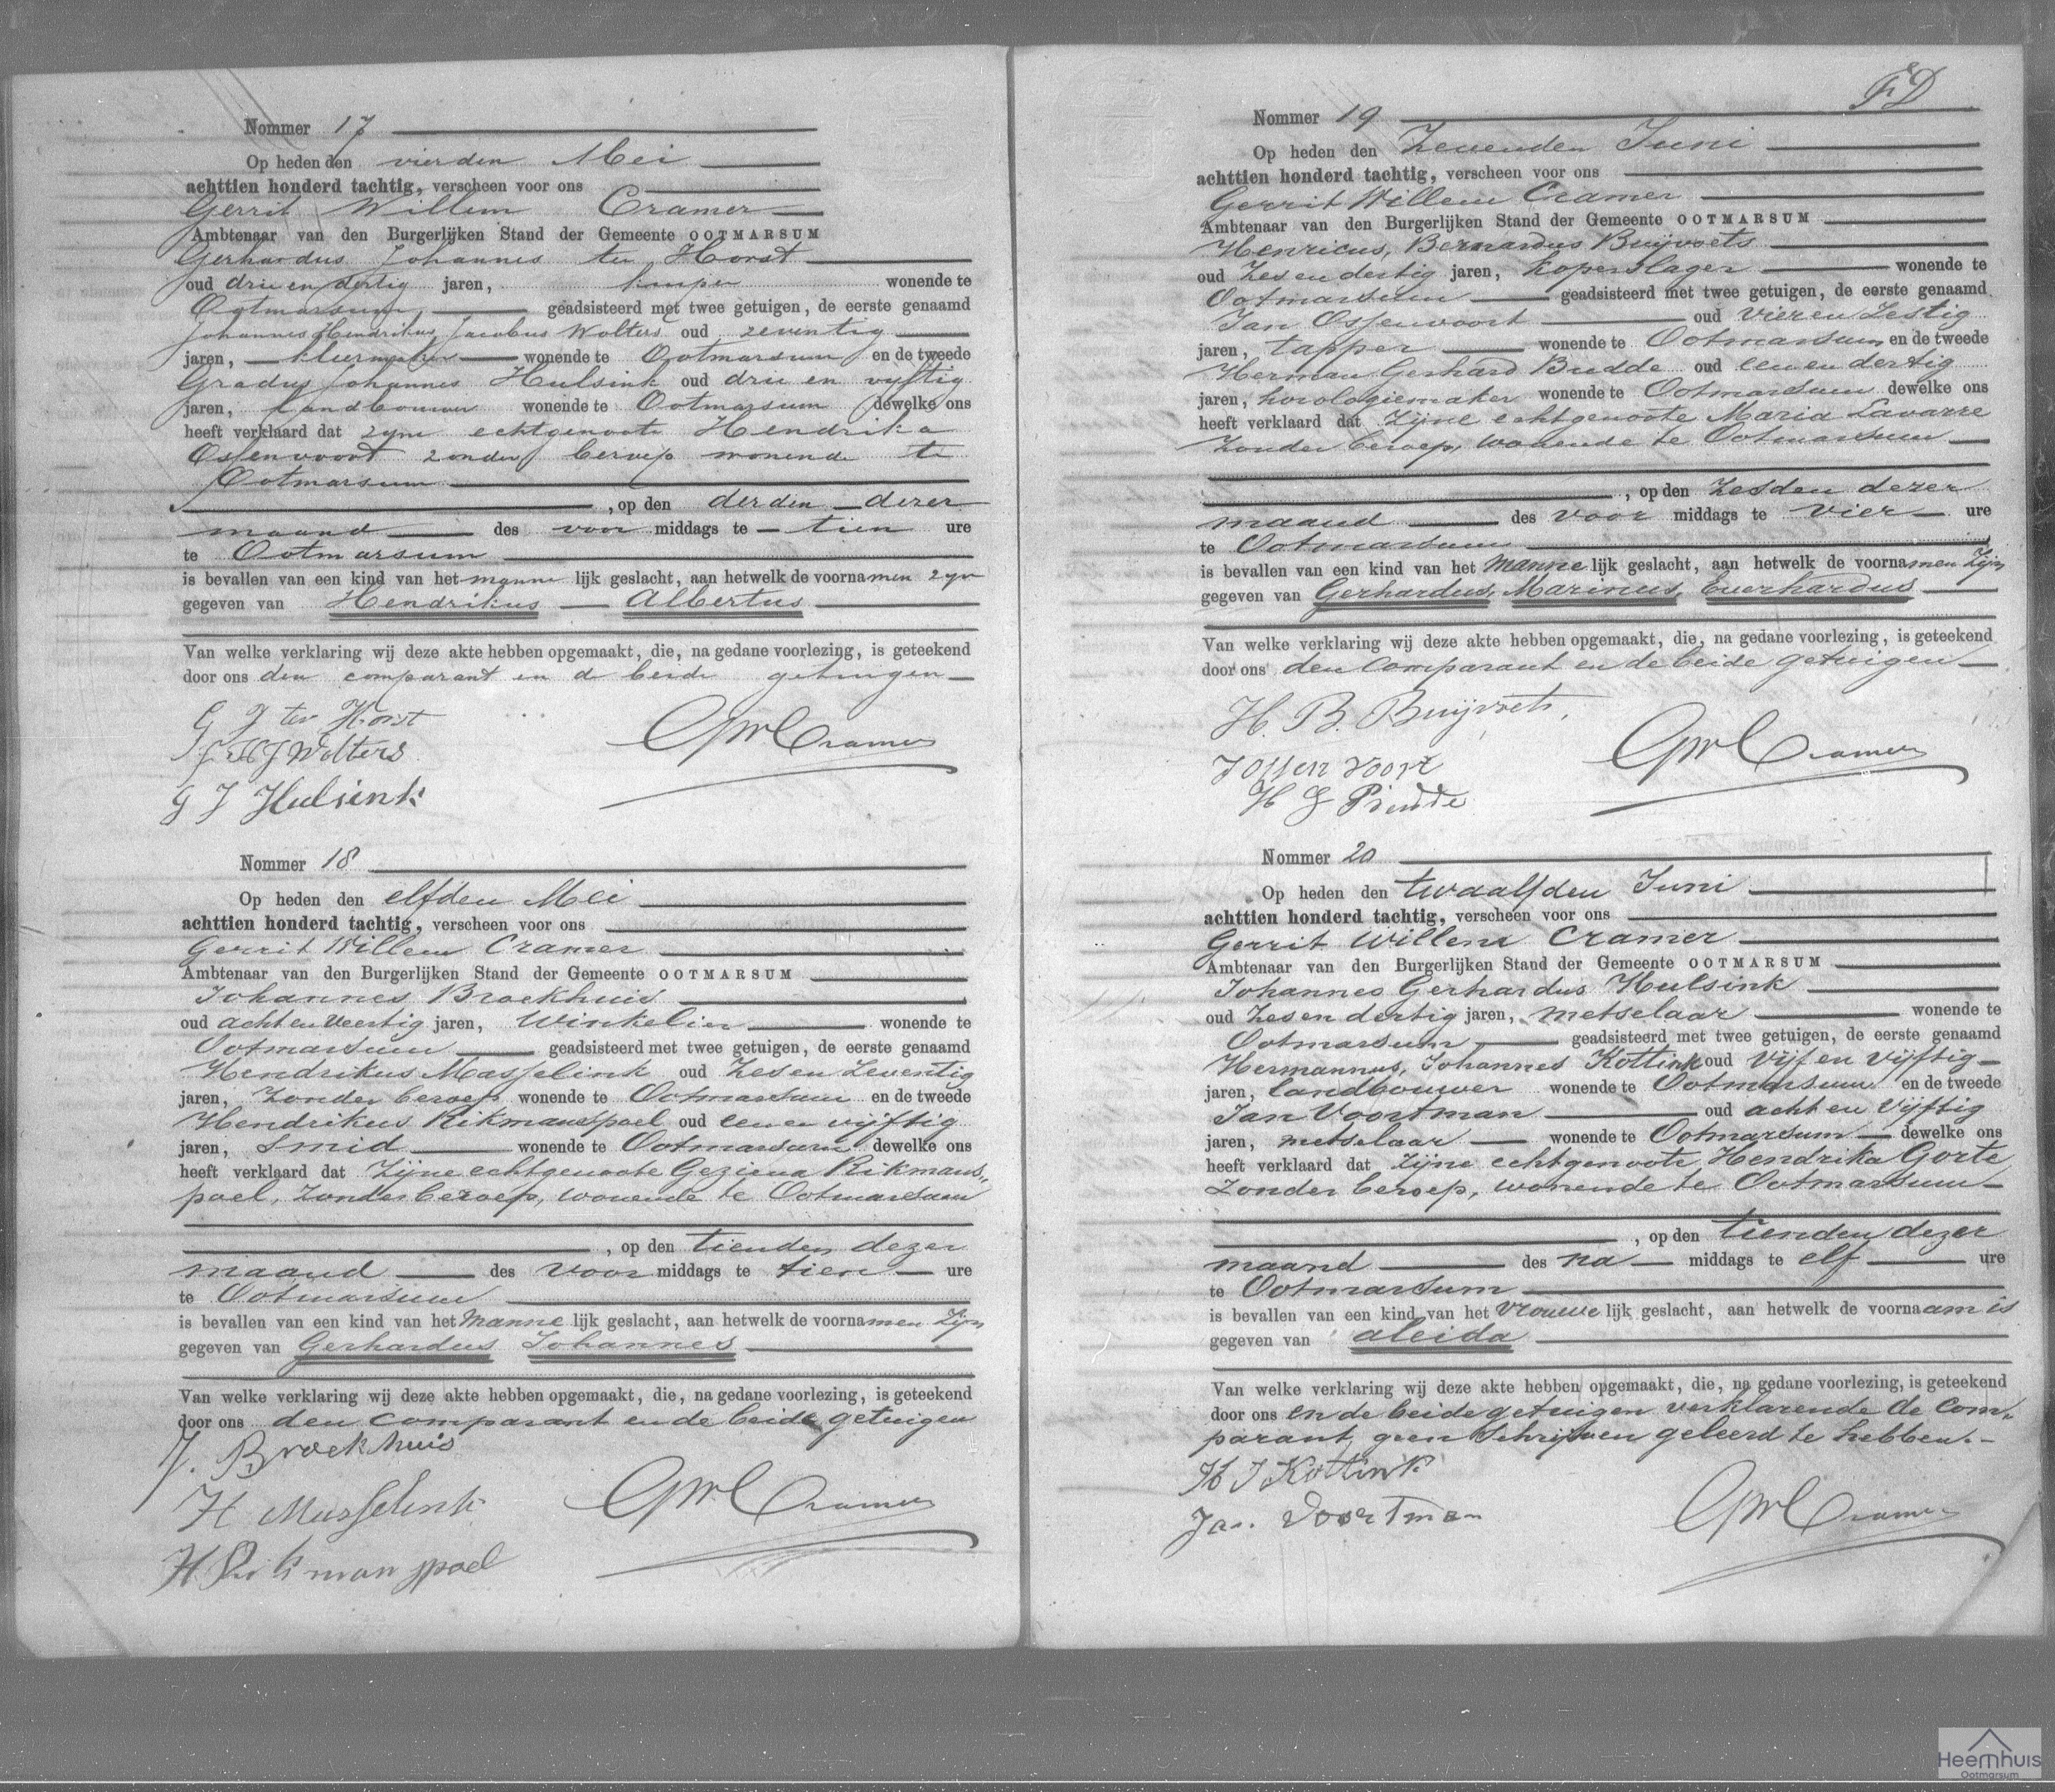 Nommer 17
Op heden den vierden Mei
achttien honderd tachtig, verscheen voor ons
Gerrit Willem Cramer
Ambtenaar van den Burgerlijken Stand der Gemeente OOTMARSUM
Gerhardus Johannes ter Horst
oud drie en dertig jaren, kuiper wonende te
Ootmarsum geadsisteerd met twee getuigen, de eerste genaamd
Johannes Hendrikus Jacobus Wolters oud zeventig
jaren, kleermaker wonende te Ootmarsum en de tweede
Gradus Johannes Hulsink oud drie en vyftig
jaren, landbouwer wonende te Ootmarsum dewelke ons
heeft verklaard dat zyne echtgenoote Hendrika
Ossenvoort zonder beroep wonende te
Ootmarsum
, op den derden dezer
maand des voor middags te tien ure
te Ootmarsum
is bevallen van een kind van het manne lijk geslacht, aan hetwelk de voornamen zyn
gegeven van Hendrikus Albertus
Van welke verklaring wij deze akte hebben opgemaakt, die, na gedane voorlezing, is geteekend
door ons den comparant en de beide getuigen
G J ter Horst
J H J Wolters
G J Hulsink
GWCramer
Nommer 18
Op heden den elfden Mei
achttien honderd tachtig, verscheen voor ons
Gerrit Willem Cramer
Ambtenaar van den Burgerlijken Stand der Gemeente OOTMARSUM
Johannes Broekhuis
oud acht en Veertig jaren, Winkelier wonende te
Ootmarsum geadsisteerd met twee getuigen, de eerste genaamd
Hendrikus Masselink oud Zes en Zeventig
jaren, Zonder beroep wonende te Ootmarsum en de tweede
Hendrikus Rikmanspoel oud een en vijftig
jaren, Smid wonende te Ootmarsum dewelke ons
heeft verklaard dat Zijne echtgenoote Geziena Rikmans„
poel, Zonder beroep, wonende te Ootmarsum
, op den tienden dezer
maand des Voor middags te tien ure
te Ootmarsum
is bevallen van een kind van het Manne lijk geslacht, aan hetwelk de voornamen Zijn
gegeven van Gerhardus Johannes
Van welke verklaring wij deze akte hebben opgemaakt, die, na gedane voorlezing, is geteekend
door ons den comparant en de beide getuigen
J. Broekhuis
H Masselink
H Rikmanspoel
GWCramer
FD
Nommer 19
Op heden den Zevenden Juni
achttien honderd tachtig, verscheen voor ons
Gerrit Willem Cramer
Ambtenaar van den Burgerlijken Stand der Gemeente OOTMARSUM
Henricus, Bernardus Buijvoets
oud Zes en dertig jaren, koperslager wonende te
Ootmarsum geadsisteerd met twee getuigen, de eerste genaamd
Jan Ossenvoort oud vier en Zestig
jaren, tapper wonende te Ootmarsum en de tweede
Herman Gerhard Budde oud een en dertig
jaren, horologiemaker wonende te Ootmarsum dewelke ons
heeft verklaard dat Zijne echtgenoote Maria Lavarre
Zonder beroep, wonende te Ootmarsum
, op den Zesden dezer
maand des voor middags te vier ure
te Ootmarsum
is bevallen van een kind van het Manne lijk geslacht, aan hetwelk de voornamen Zijn
gegeven van Gerhardus, Marinus, Everhardus
Van welke verklaring wij deze akte hebben opgemaakt, die, na gedane voorlezing, is geteekend
door ons den comparant en de beide getuigen
H. B. Buijvoets,
J Ossenvoort
H G Budde
GWCramer
Nommer 20
Op heden den twaalfden Juni
achttien honderd tachtig, verscheen voor ons
Gerrit Willem Cramer
Ambtenaar van den Burgerlijken Stand der Gemeente OOTMARSUM
Johannes Gerhardus Hulsink
oud Zes en dertig jaren, metselaar wonende te
Ootmarsum geadsisteerd met twee getuigen, de eerste genaamd
Hermannus, Johannes Kottink oud Vijf en Vijftig
jaren, landbouwer wonende te Ootmarsum en de tweede
Jan Voortman oud acht en Vijftig
jaren, metselaar wonende te Ootmarsum dewelke ons
heeft verklaard dat Zijne echtgenoote Hendrika Gorte
Zonder beroep, wonende te Ootmarsum
, op den tienden dezer
maand des na middags te elf ure
te Ootmarsum
is bevallen van een kind van het Vrouwe lijk geslacht, aan hetwelk de voornaam is
gegeven van aleida
Van welke verklaring wij deze akte hebben opgemaakt, die, na gedane voorlezing, is geteekend
door ons en de beide getuigen verklarende de com„
parant geen Schrijven geleerd te hebben.
H J Kottink
Jan Voortman
GWCramer
Heemhuis
Ootmarsum